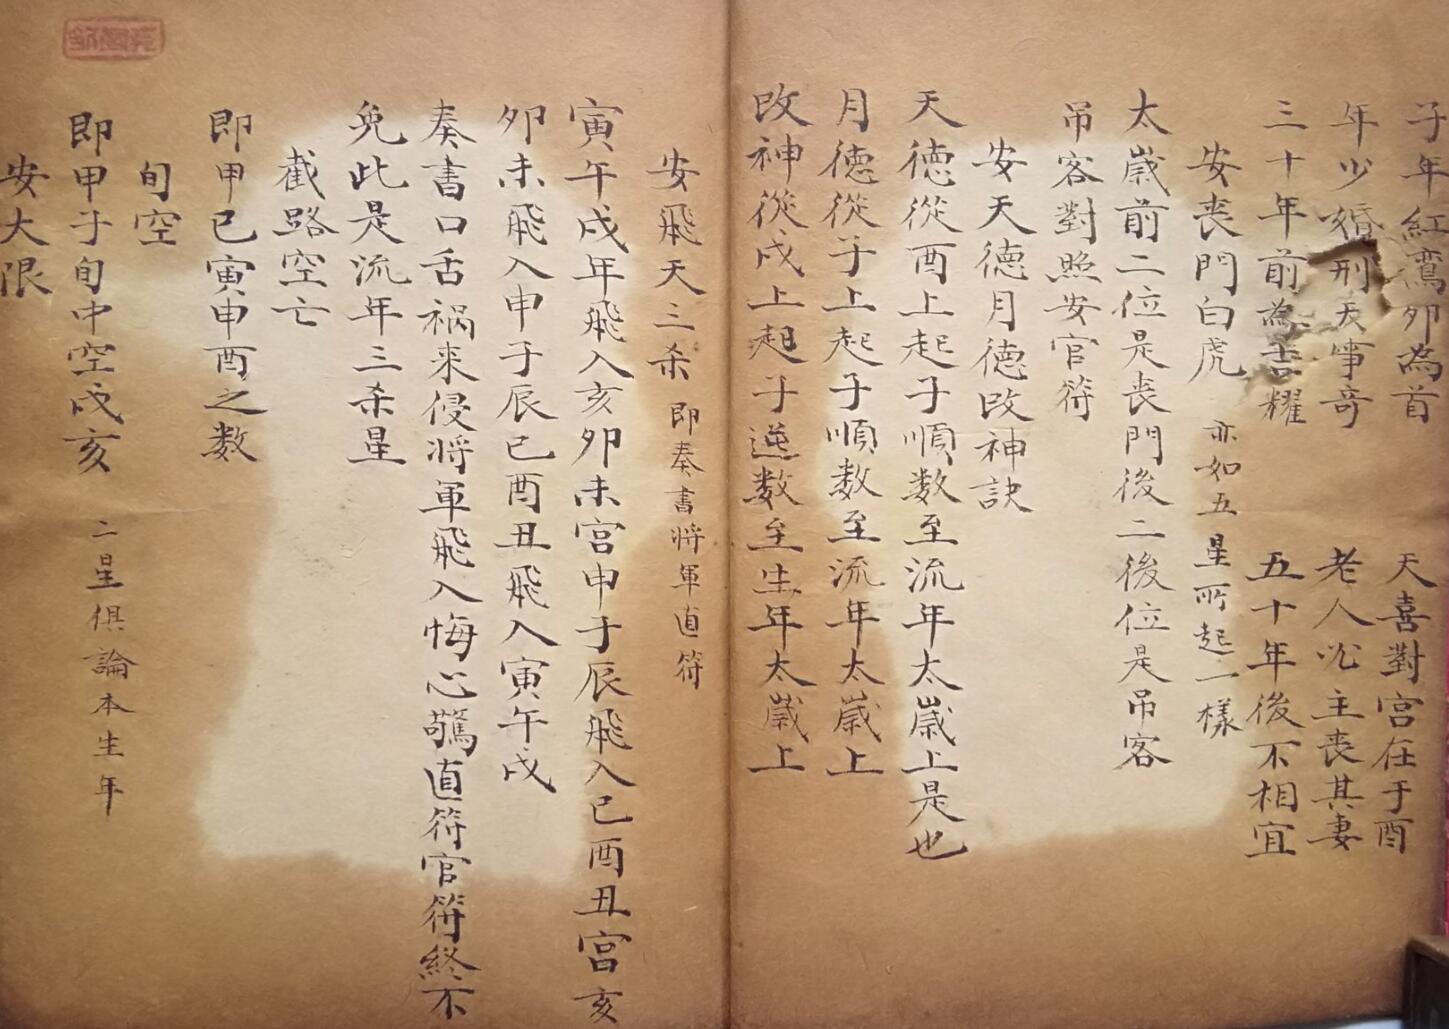 子年紅鸞卯為首 天喜對宮在于酉
年少婚刑天事奇 老人必主丧其妻
三十年前為吉耀 五十年後不相宜
安丧門白虎 亦如五星所起一樣
太歲前二位是丧門後二後位是吊客
吊客對照安官符
安天德月德改神訣
天德從酉上起子順数至流年太歲上是也
月德從子上起子順数至流年太歲上
改神從戌上起子逆数至生年太歲上
安飛天三杀 即奏書将軍直符
寅午戌年飛入亥卯未宮申子辰飛入巳酉丑宮亥
卯未飛入申子辰巳酉丑飛入寅午戌
奏書口舌禍来侵将軍飛入悔心驚直符官符終不
免此是流年三杀星
截路空亡
即甲巳寅申酉之数
旬空
即甲子旬中空戌亥 二星俱論本生年
安大限